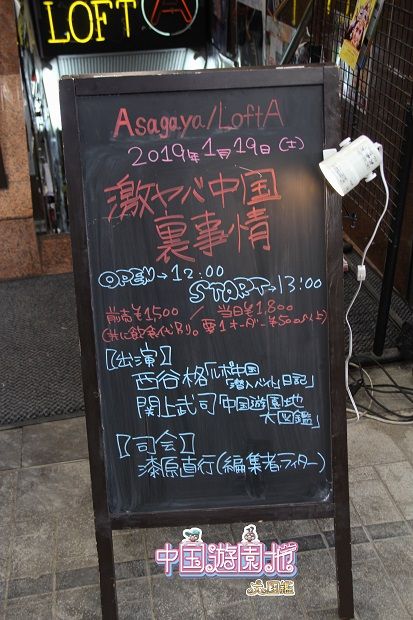 LOFT A
Asagaya/LoftA
2019年1月19日(土)
激ヤバ中国
裏事情
OPEN→12:00
START→13:00
前売¥1500 / 当日¥1,800
(共に飲食代別。要1オーダー¥500以上)
【出演】
西谷格「ルポ中国
「潜入バイト」日記」
関上武司「中国遊園地
大図鑑」
【司会】
漆原直行(編集者ライター)
中国遊園地
大図鑑